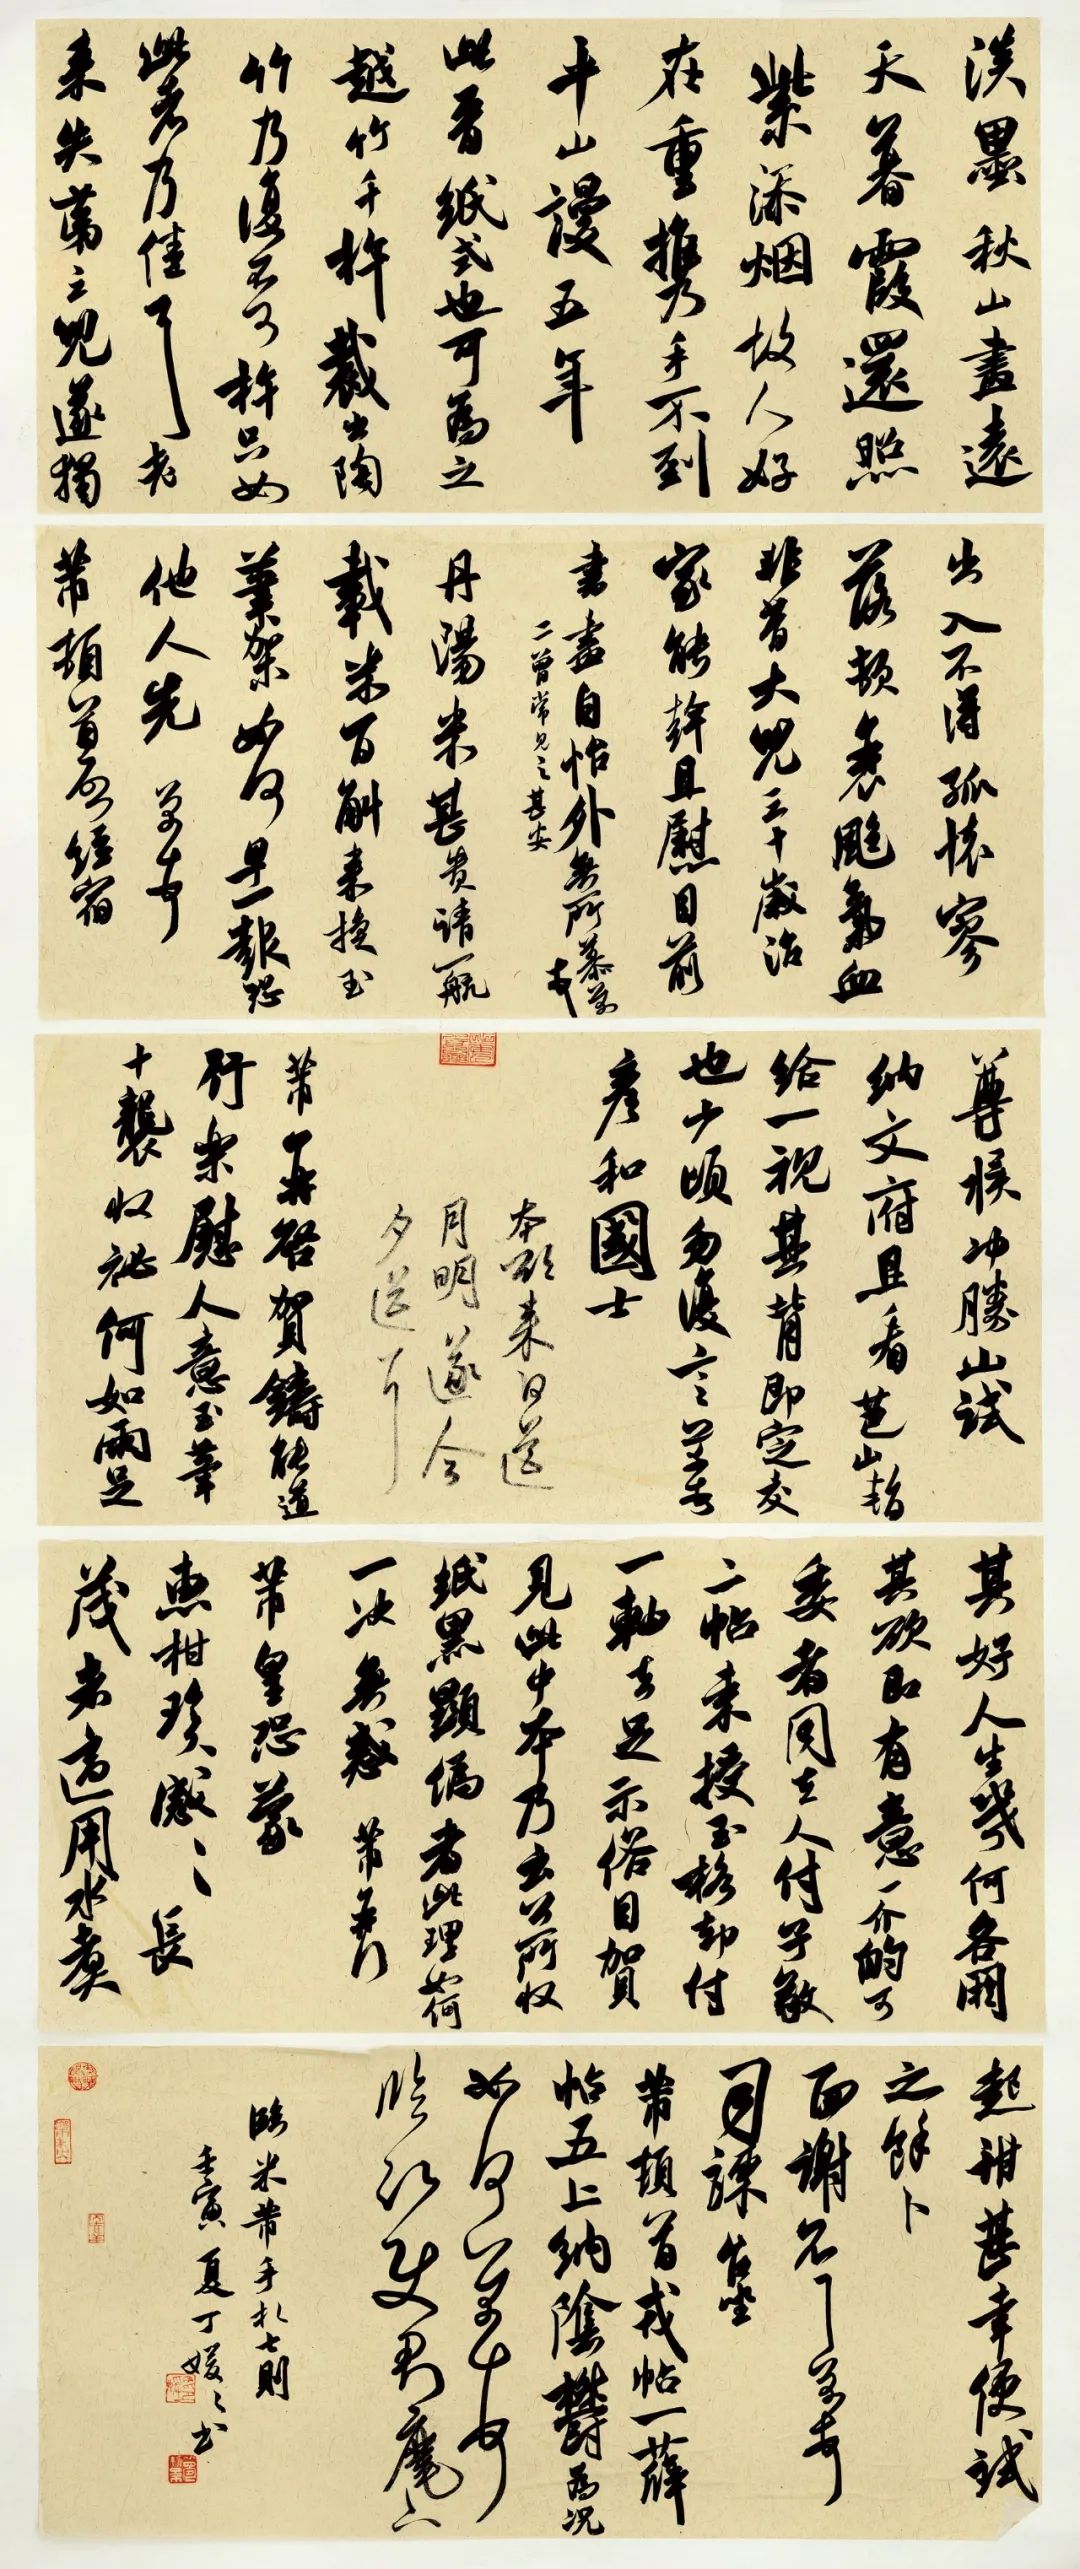 淡墨秋山畫遠
天暮霞還照
紫添烟故人好
在重攜手不到
平山謾五年
此晉紙式也可為之
越竹千杵裁出陶
竹乃復不可杵只如
此者乃佳耳老
來失萬之兒遂獨
出入不得孤懷寥
落頓衰颷氣血
非昔大兒三十歲治
家能幹且慰目前
書畫自怡外無所慕芾
二曾常見之甚安
丹陽米甚貴請一航
載米百斛來換玉
筆架如何早一報恐
他人先芾頓首
芾頓首啓經宿
尊候冲勝山試
納文府且看芭山暫
給一視其背即定交
也少頃勿復言芾
彥和國士
本欲來日送
月明遂今
夕送耳
芾再啓賀鑄能道
行樂慰人意玉筆
十襲收祕何如兩足
其好人生幾何各閼
其欲即有意一介的可
委者同去人付予敬
二帖來授玉格却付
一軸去足示俗目賀
見此中本乃去所收
紙黑顯偽者此理如何
一決無惑芾再行
芾皇恐蒙
惠柑珍感之長
茂者適用水煮
起甜甚幸便試
之餘卜
面謝不一芾頓首
司諫台坐
芾頓首戎帖一薛
帖五上納陰鬱為況
如何芾頓首
臨沂使君麾下
臨米芾手札七則
壬寅夏丁媛之書